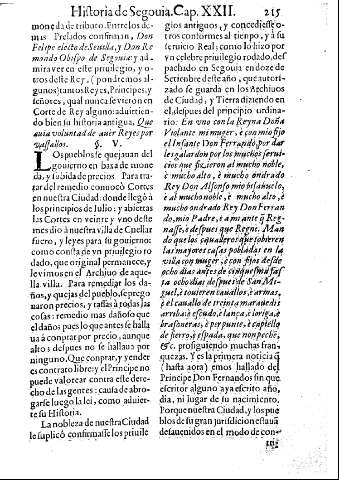 Historia de Segouia. Cap. XXII. 215
moneda de tributo. Entre los de-
mas Preludos confirman, Don
Felipe electo de Seuilla, y Don Re
mondo Obispo de Segouia: y ad-
miraver en este priuilegio, y o-
tros deste Rey (pondremos al-
gunos) tantos Reyes, Principes, y
señores, qual nunca se vieron en
Corte de Rey alguno: aduirtien-
do bien su historia antigua. Que
auia voluntad de auer Reyes por
vassallos.
§. V.
Los pueblos se quejauan del
gouierno en baxa de mone
da, y subida de precios Para tra-
tar del remedio conuocò Cortes
en nuestra Ciudad: donde llegò à
los principios de Iulio: y abiertas
las Cortes en veinte y vno deste
mes dio à nuestra villa de Cuellar
fuero, y leyes para su gouierno:
como consta de vn priuilegio ro
dado, que original permanece, y
le vimos en el Archiuo de aque-
lla villa. Para remediar los da-
ños, y quejas del pueblo, se prego
naron precios, y tassas à todas las
cosas: remedio mas dañoso que
el daño: pues lo que antes se halla
ua à conptar por precio, aunque
alto; despues no se hallaua por
ninguno. Que conprar, y vender
es contrato libre: y el Principe no
puede valorear contra este dere-
cho de las gentes: causa de abro-
garse luego la lei, como aduier-
te su Historia.
La nobleza de nuestra Ciudad
le suplicò confirmasse los priuile
gios antiguos, y concediesse o-
tros conformes al tiempo, y à su
seruicio Real; como lo hizo por
vn celebre priuilegio rodado, des
pachado en Segouia en doze de
Setienbre deste año, que autori-
zado se guarda en los Archiuos
de Ciudad, y Tierra diziendo en
el, despues del principio ordina-
rio: En vno con la Reyna Doña
Violante mi muger, è con mio fijo
el Infante Don Ferrando, por dar
les galardon por los muchos serui-
cios que ficieron al mucho noble,
è mucho alto, è mucho ondrado
Rey Don Alfonso mio bisauuelo,
è al mucho noble, è mucho alto, è
mucho ondrado Rey Don Ferran
do, mio Padre, è a mi ante q̃ Reg-
nasse, è despues que Regnè. Man
do que los caualleros que touieren
las mayores casas pobladas en la
villa con muger, è con fijos desde
ocho dias antes de cinquesma fas
ta ocho dias despues de San Mi-
guel, è touieren cauallos, è armas,
è el cauallo de treinta marauedis
arriba; è escudo, è lança, è loriga, è
brafoneras, è perpunte, è capiello
de fierro, è espada, que non peche,
&c. prosiguiendo muchas fran-
quezas. Y es la primera noticia q̃
(hasta aora) emos hallado del
Principe Don Fernando: sin que
escritor alguno aya escrito año,
dia, ni lugar de su nacimiento.
Porque nuestra Ciudad, y los pue
blos de su gran jurisdicion estauā
desauenidos en el modo de con-